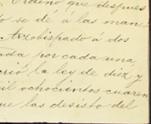 Ordeno que despues
se dé á las man-
Arzobispado á dos
cada por cada una,
la ley de diez y
mil ochocientos cuaren
que las desisto del